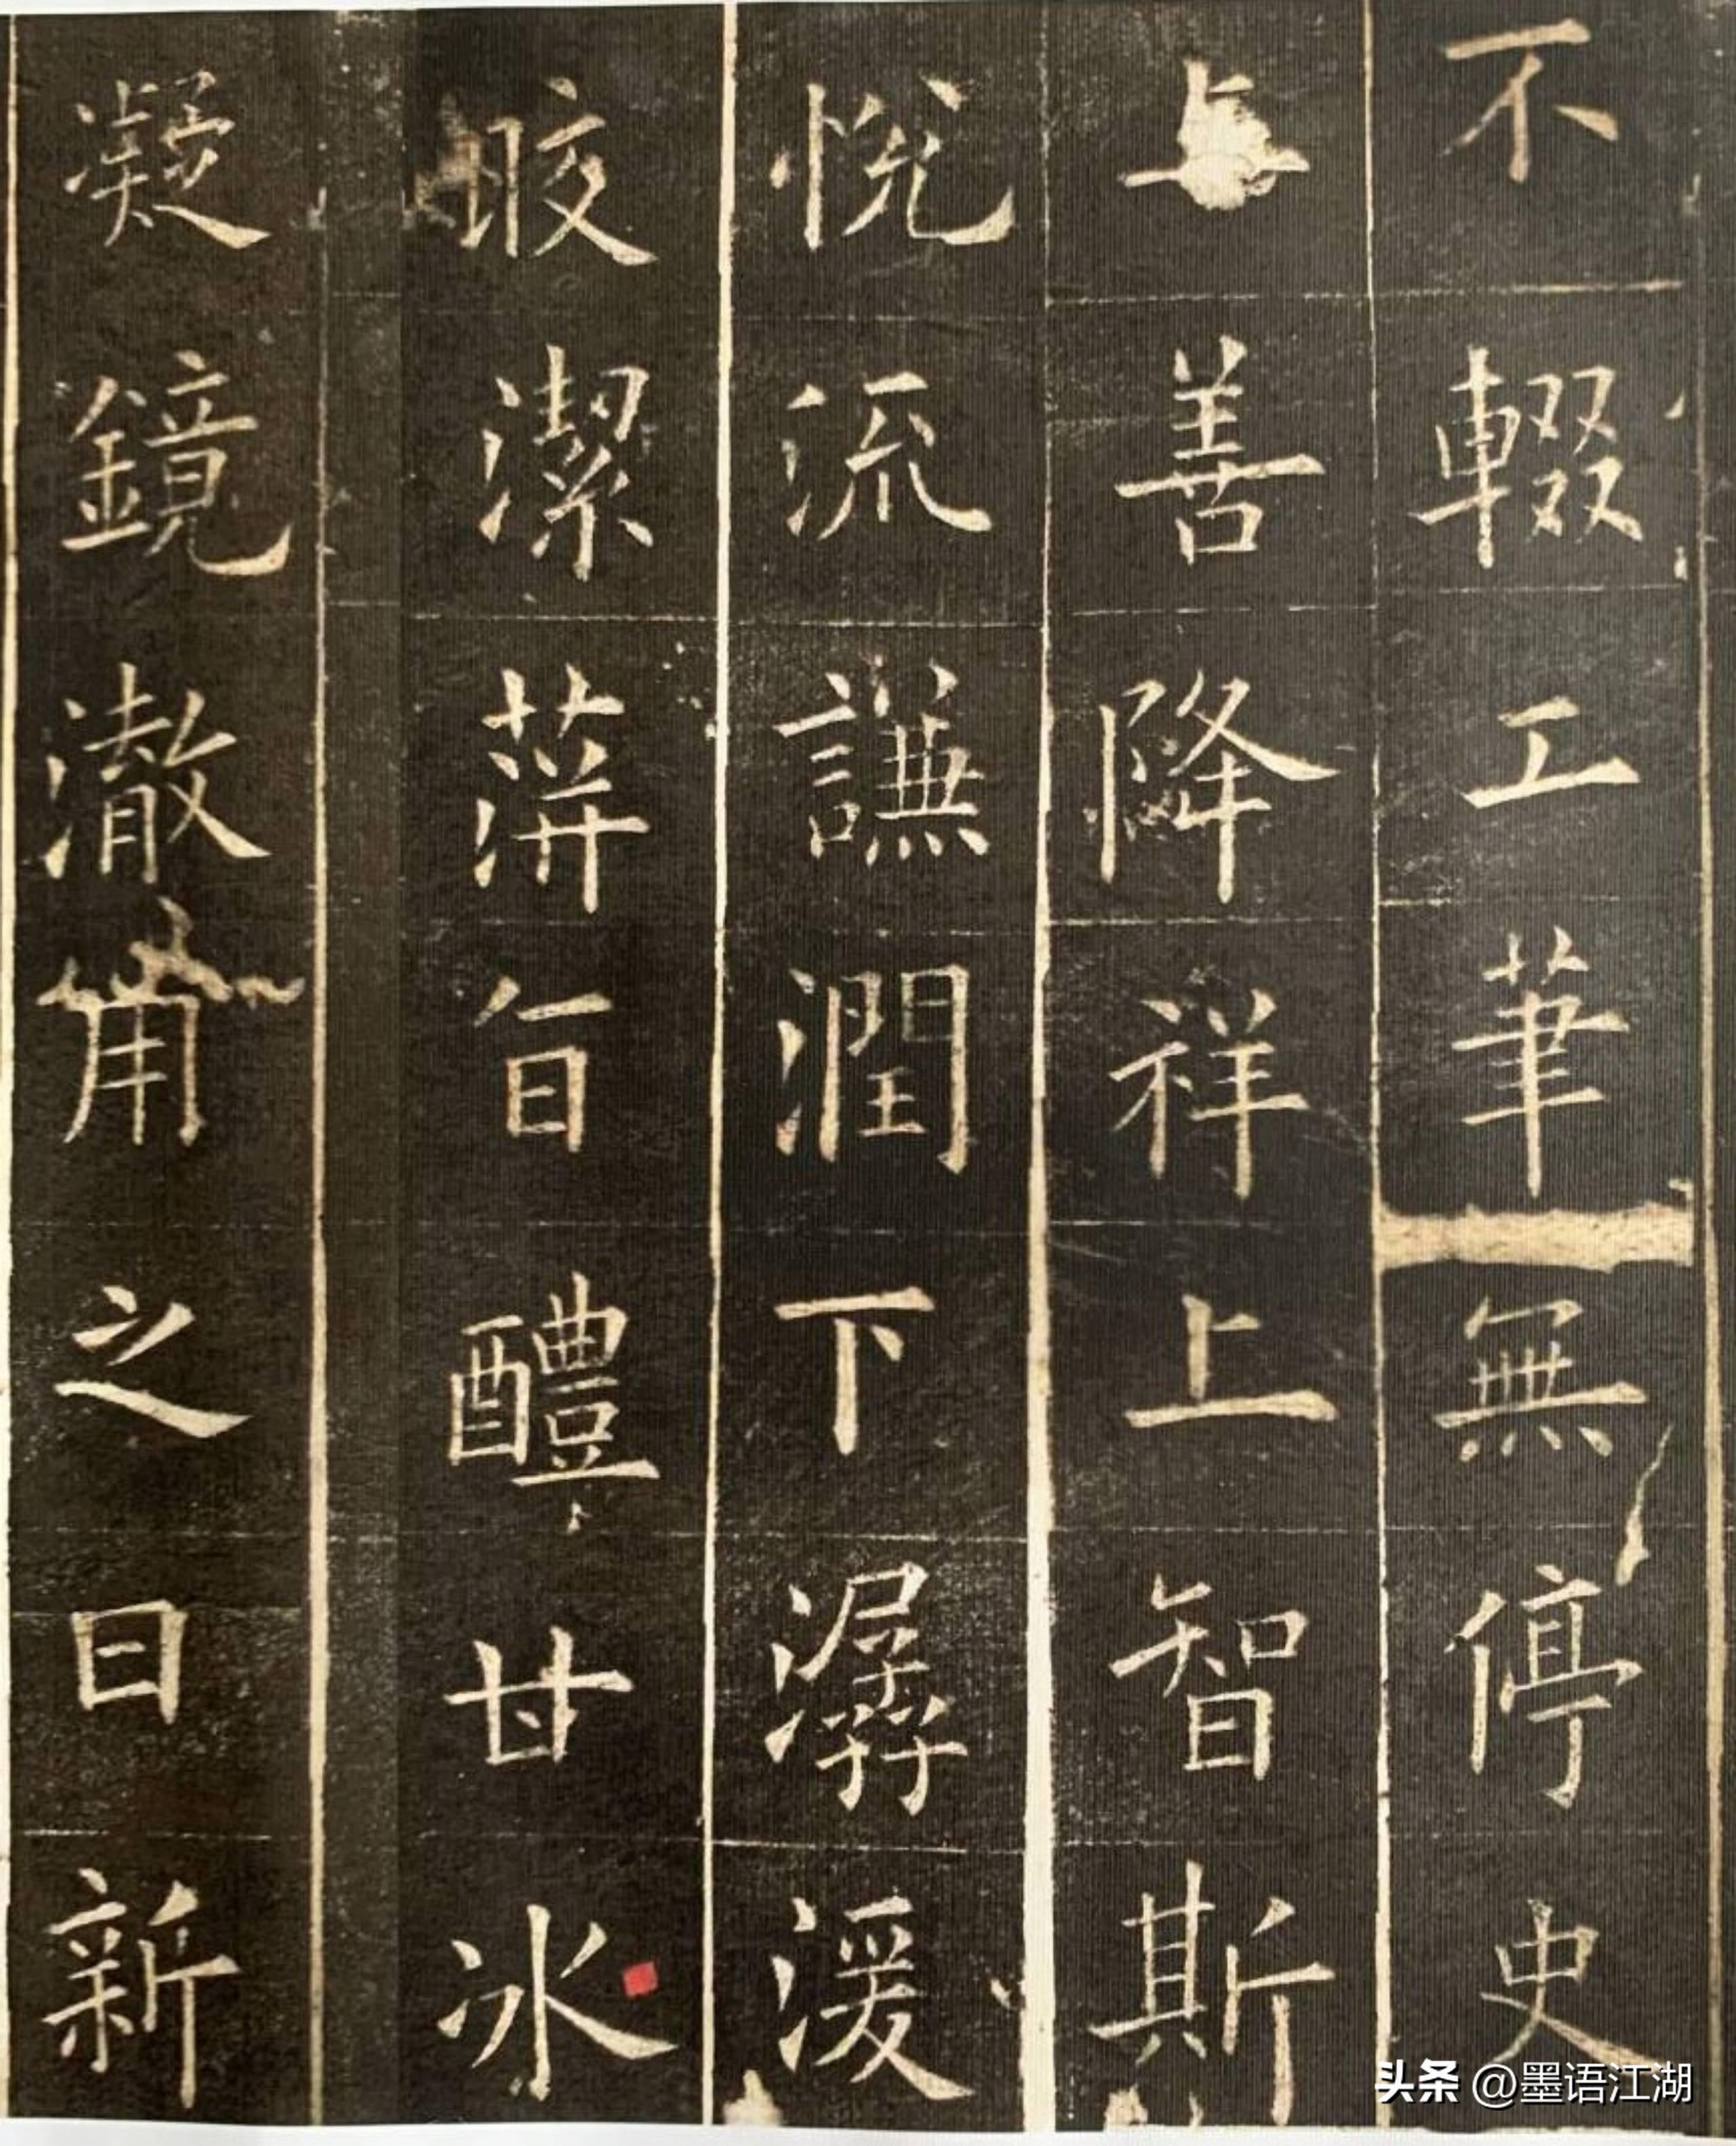 不輟工筆無停史
上善降祥上智斯
悅流謙潤下潺湲
晈潔蓱旨醴甘冰
凝鏡澈用之日新
头条 @墨语江湖